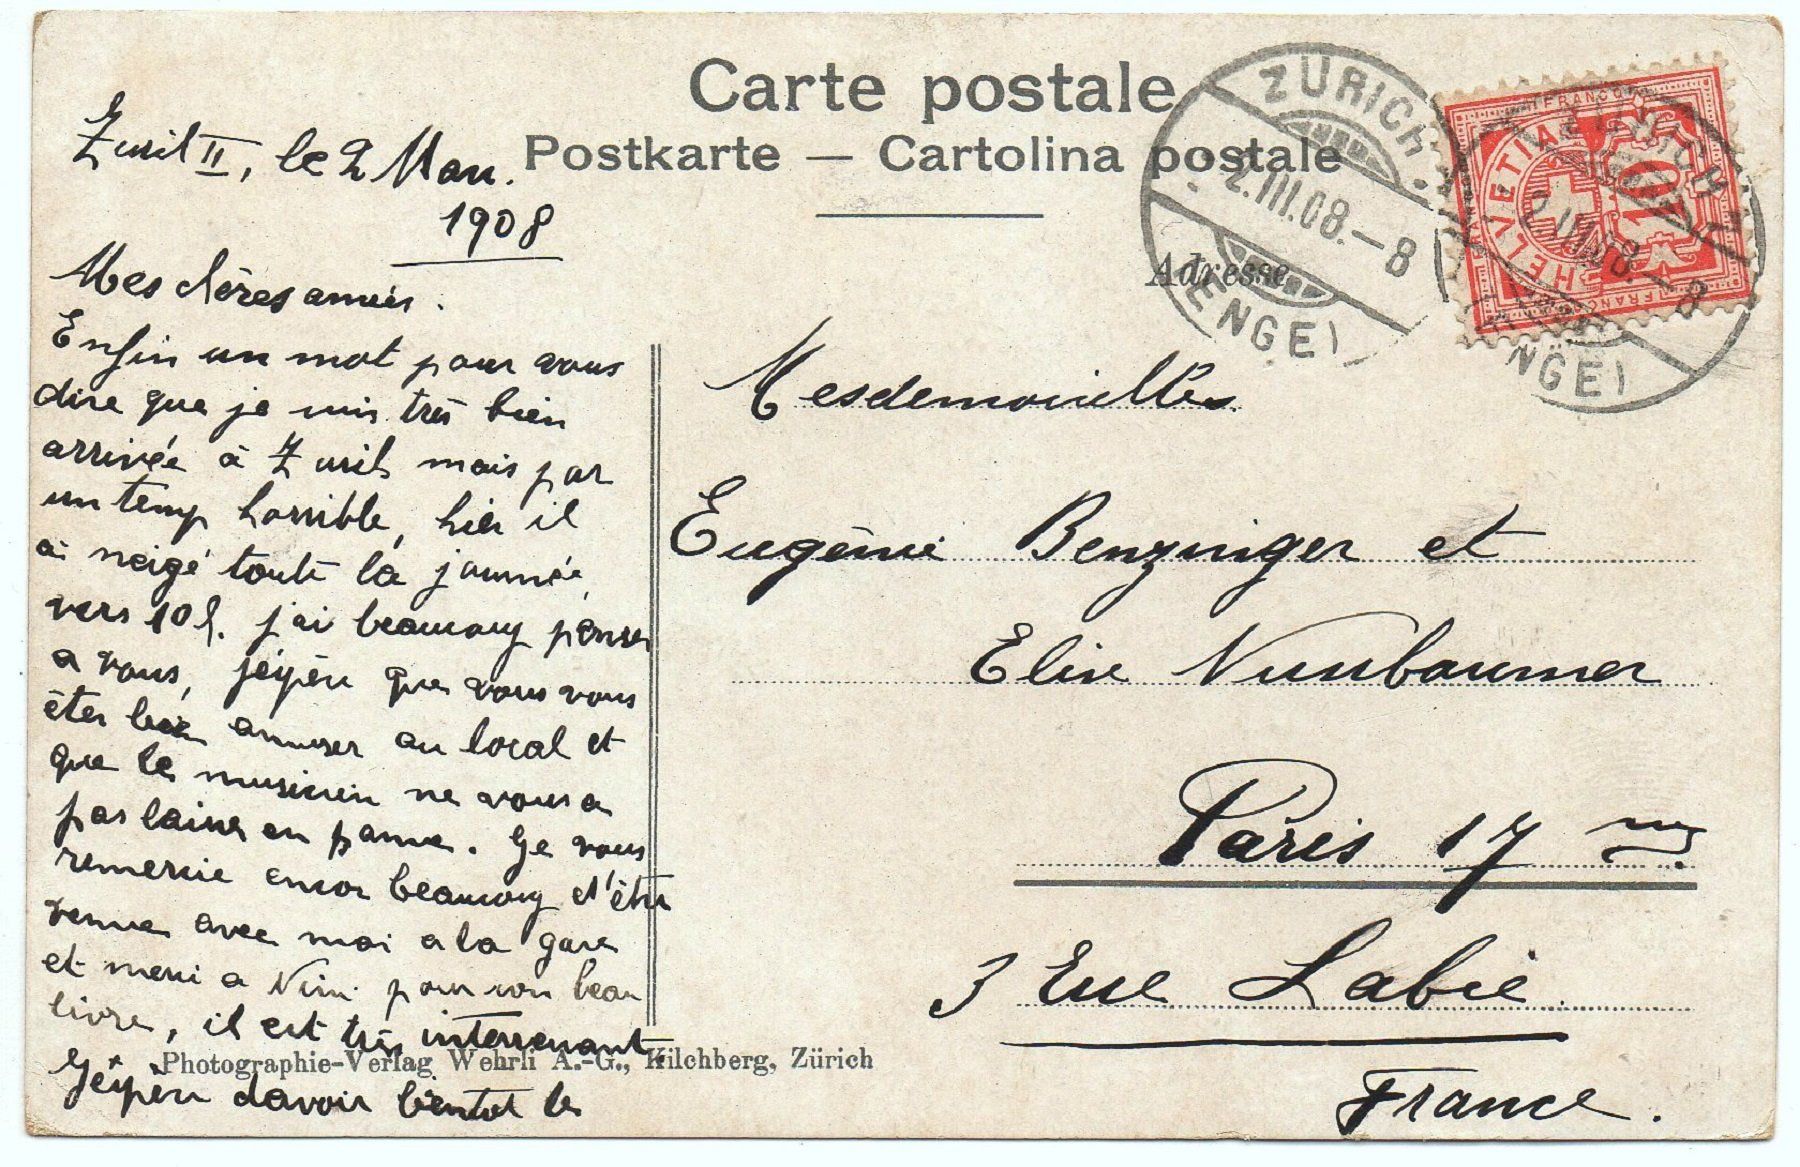 Carte postale
Postkarte — Cartolina postale
Adresse
ZÜRICH
2.III.08.–8
(ENGE)
ZÜRICH
2.III.08.–8
(ENGE)
FRANCO
HELVETIA
10
FRANCO
Zurich II, le 2 Mars.
1908
Mes chères amies.
Enfin un mot pour vous
dire que je suis très bien
arrivée à Zurich mais par
un temp horrible, hier il
à neigé toute la journée,
vers 10 h. j'ai beaucoup penser
a vous, j'éspère que vous vous
êtes bien amuser au local et
que les musicien ne vous a
pas laiser en panne. Ge vous
remercie encor beaucoup d'être
venue avec moi a la gare
et merci a Nini pour son beau
livre, il est très interressant.
Géspère davoir bientot le
Photographie-Verlag Wehrli A.-G., Kilchberg, Zürich
Mesdemoiselles
Eugénie Benzinger et
Elise Nussbaumer
Paris 17 me.
3 Rue Labie
France.